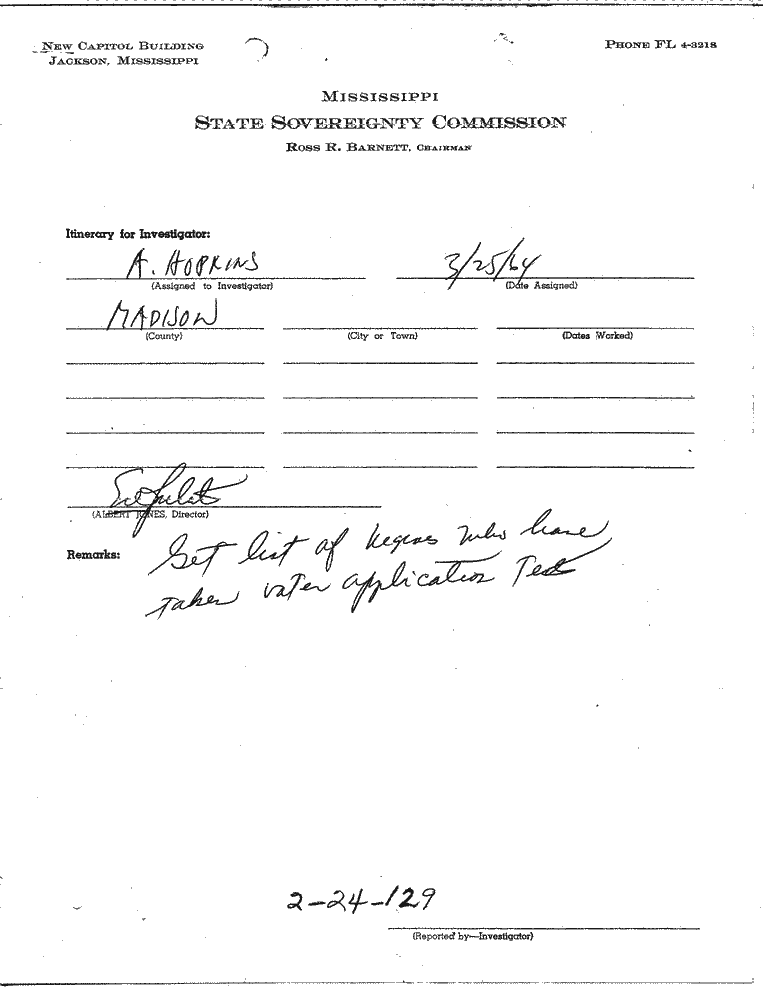 NEW CAPITOL BUILDING
JACKSON, MISSISSIPPI
PHONE FL 4-3218
MISSISSIPPI
STATE SOVEREIGNTY COMMISSION
ROSS R. BARNETT, CHAIRMAN
Itinerary for Investigator:
A. HOPKINS 3/25/64
(Assigned to Investigator) (Date Assigned)
MADISON
(County) (City or Town) (Dates Worked)
(ALBERT JONES, Director)
Remarks: Get list of Negroes who have
taken voter application Test
2-24-129
(Reported by—Investigator)